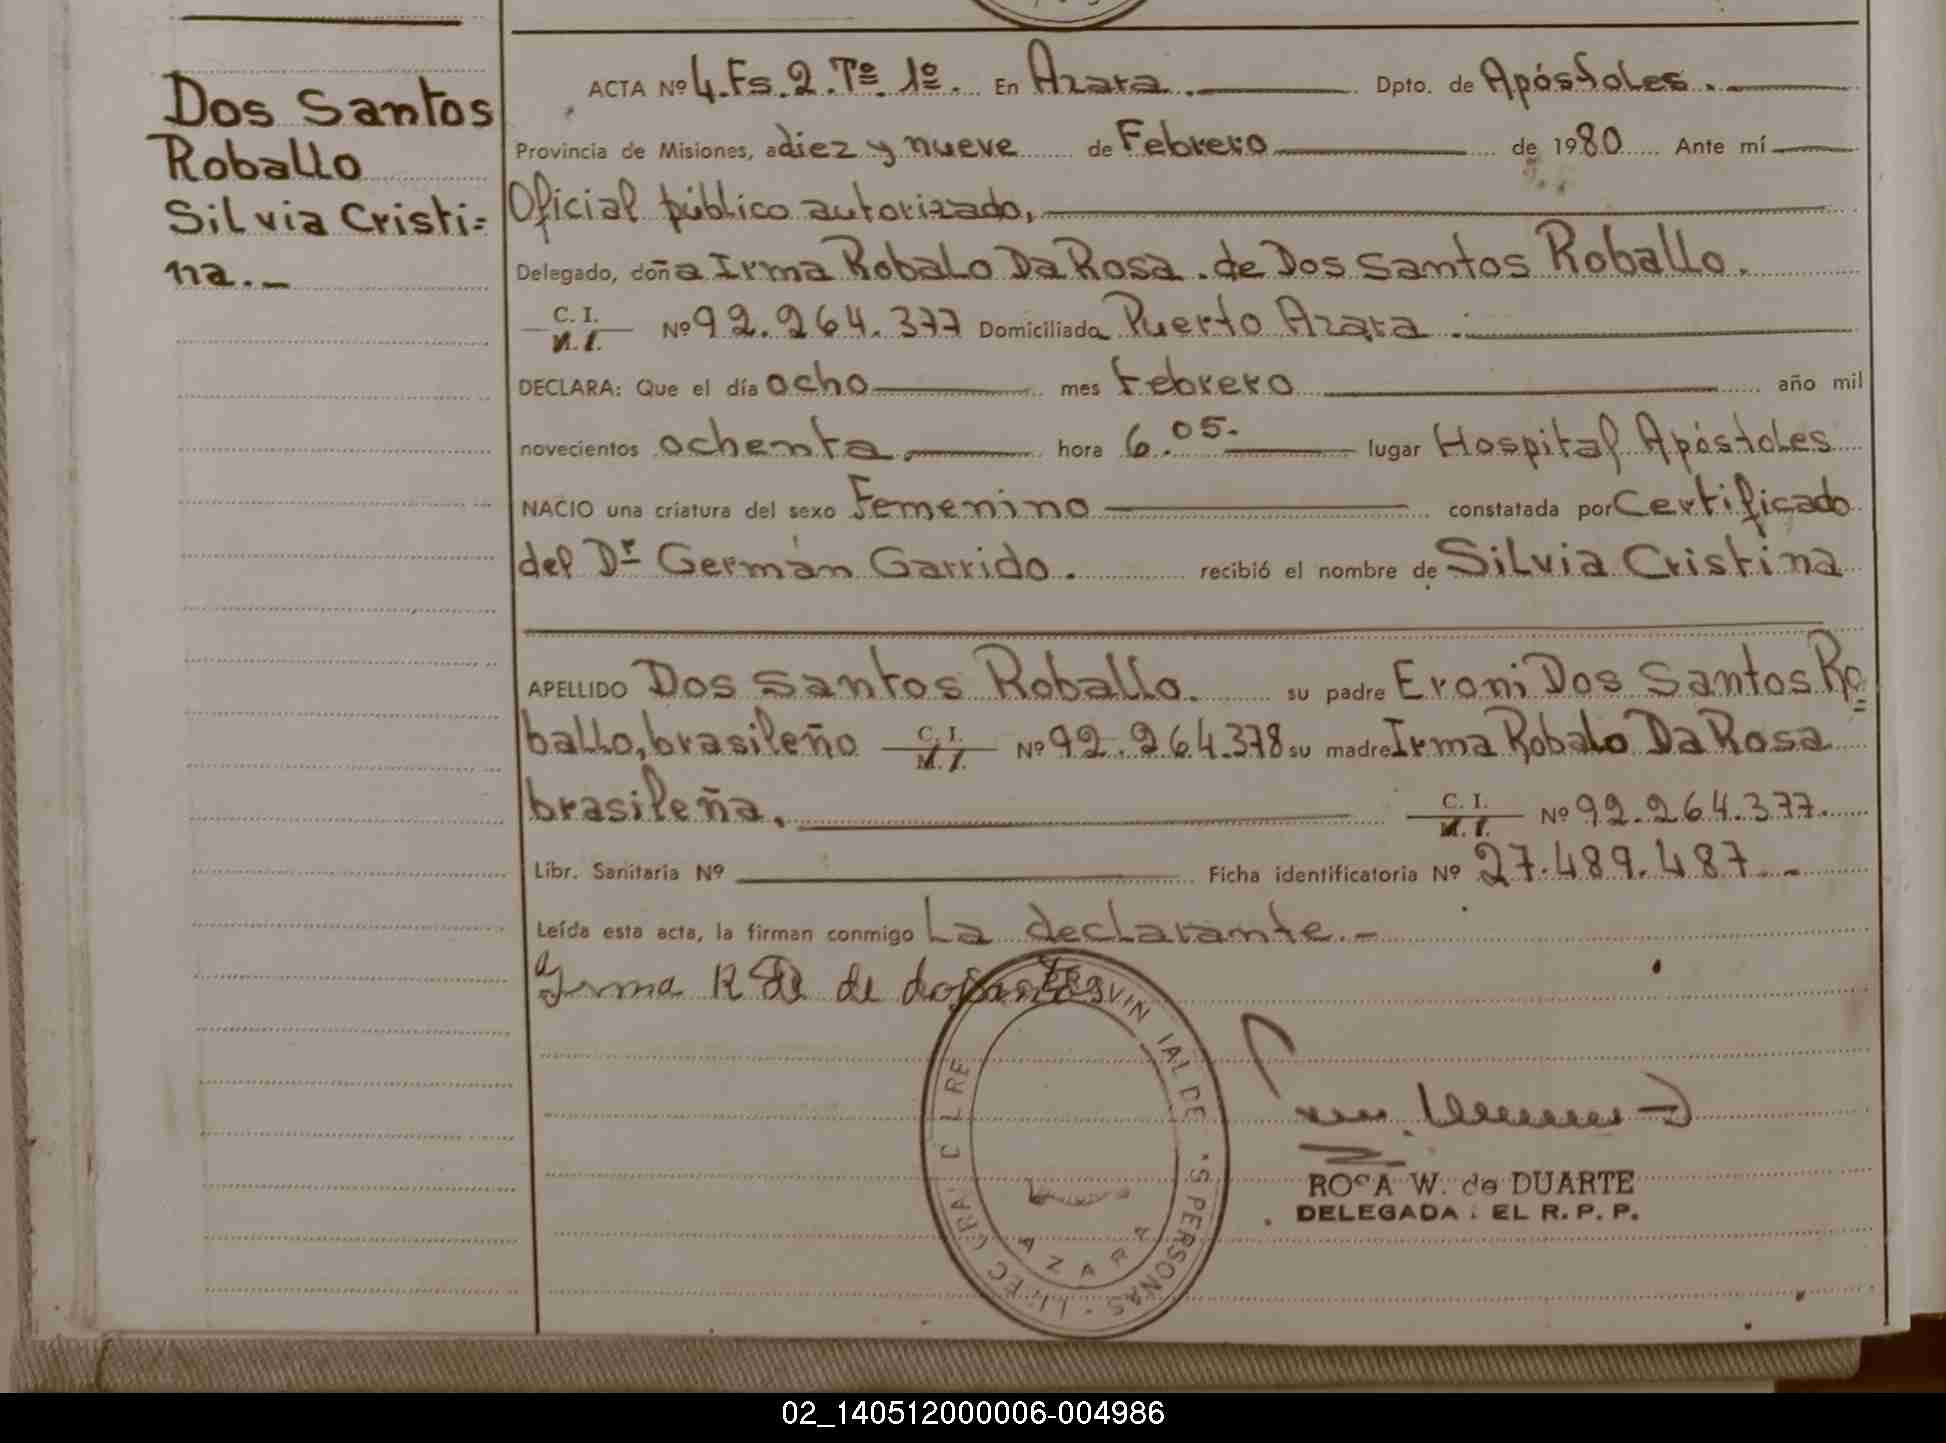 Dos Santos
Roballo
Silvia Cristi=
na.-
ACTA Nº 4.Fs.2.Tº.1º. En Azara. Dpto. de Apóstoles.
Provincia de Misiones, a diez y nueve de Febrero de 1980 Ante mí
Oficial público autorizado,
Delegado, doña Irma Robalo Da Rosa. de Dos Santos Roballo.
C. I.
M. I. Nº 92.264.377 Domiciliada Puerto Azara.
DECLARA: Que el día ocho mes Febrero año mil
novecientos ochenta. hora 6.05.- lugar Hospital Apóstoles
NACIO una criatura del sexo Femenino constatada por Certificado
del Dr Germán Garrido. recibió el nombre de Silvia Cristina
APELLIDO Dos Santos Roballo. su padre Eroni Dos Santos Ro=
ballo, brasileño C. I. M. I. Nº 92.264.378 su madre Irma Robalo Da Rosa
brasileña. C. I. M. I. Nº 92.264.377.
Libr. Sanitaria Nº Ficha identificatoria Nº 27.489.487.-
Leída esta acta, la firman conmigo La declarante.-
Irma R de
AZARA
ROSA W. de DUARTE
DELEGADA EL R. P. P.
02_140512000006-004986